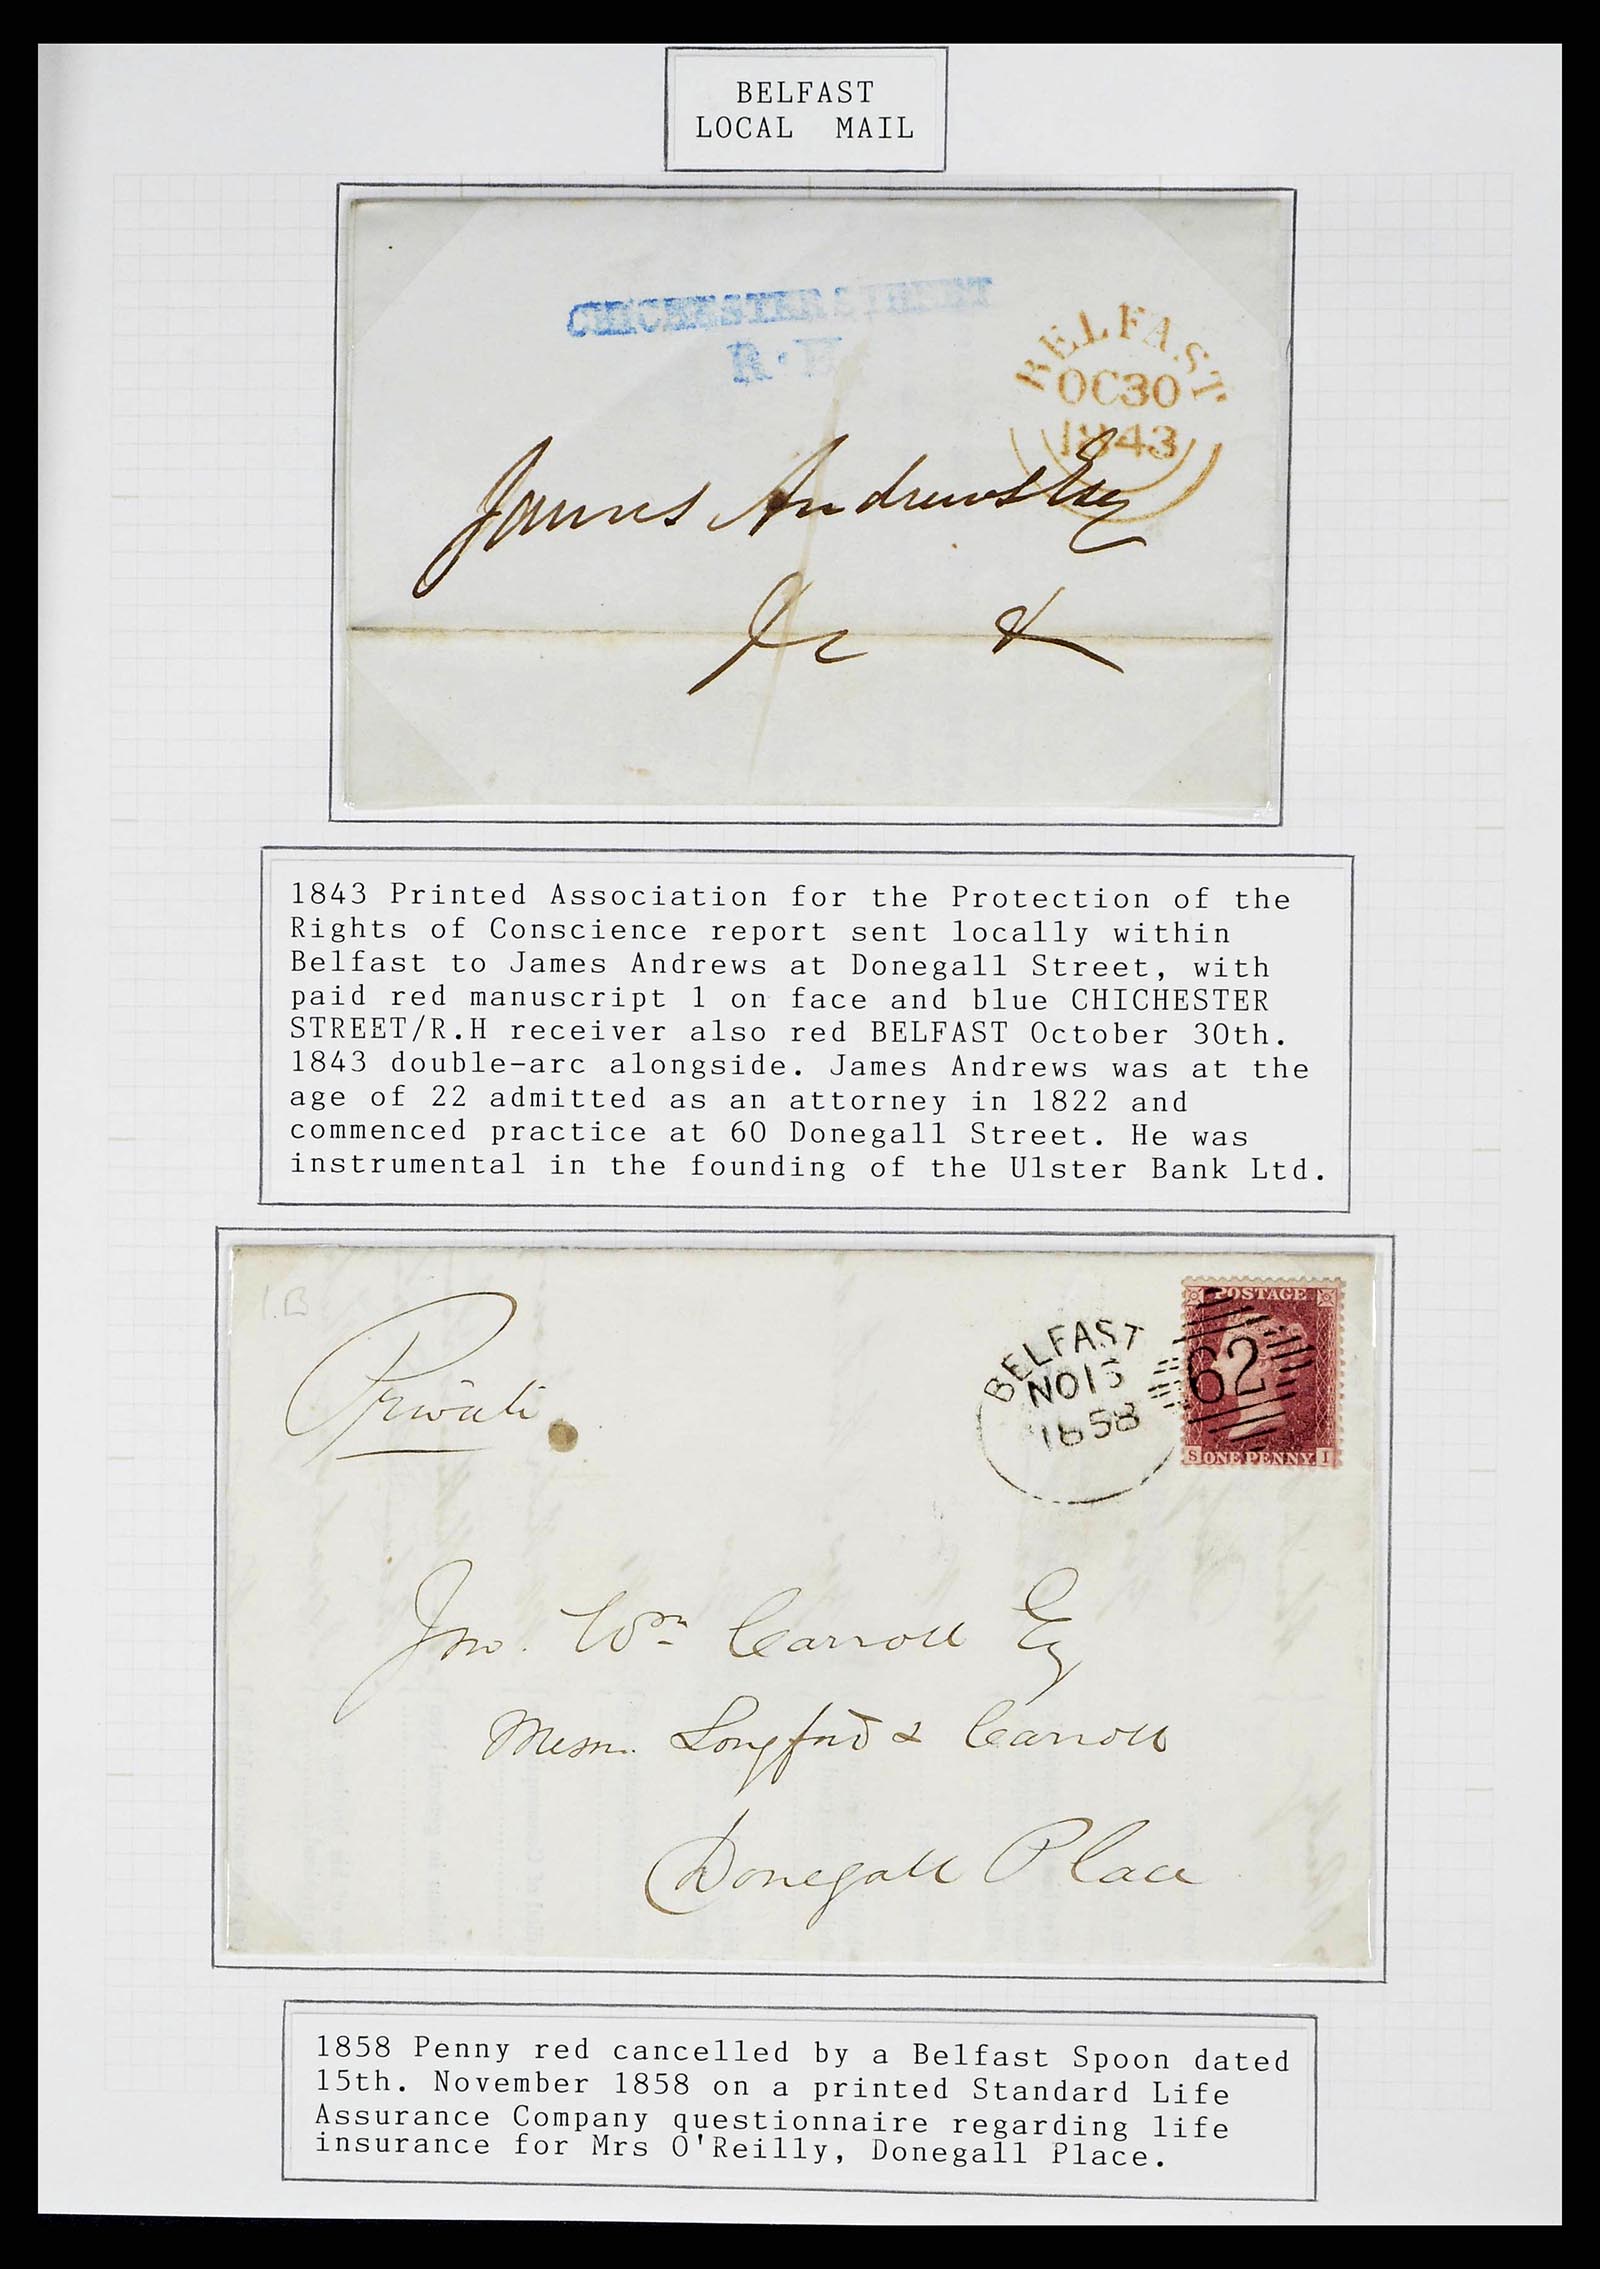 BELFAST
LOCAL MAIL
CHICHESTER STREET
R·H
BELFAST
OC30
1843
1
James Andrews Esq
&c &
1843 Printed Association for the Protection of the
Rights of Conscience report sent locally within
Belfast to James Andrews at Donegall Street, with
paid red manuscript 1 on face and blue CHICHESTER
STREET/R.H receiver also red BELFAST October 30th.
1843 double-arc alongside. James Andrews was at the
age of 22 admitted as an attorney in 1822 and
commenced practice at 60 Donegall Street. He was
instrumental in the founding of the Ulster Bank Ltd.
1.B
Private
BELFAST
NO15
1858
POSTAGE
62
S ONE PENNY I
Jno. Wm Carroll Esq
Messrs. Longford & Carroll
Donegall Place
1858 Penny red cancelled by a Belfast Spoon dated
15th. November 1858 on a printed Standard Life
Assurance Company questionnaire regarding life
insurance for Mrs O'Reilly, Donegall Place.